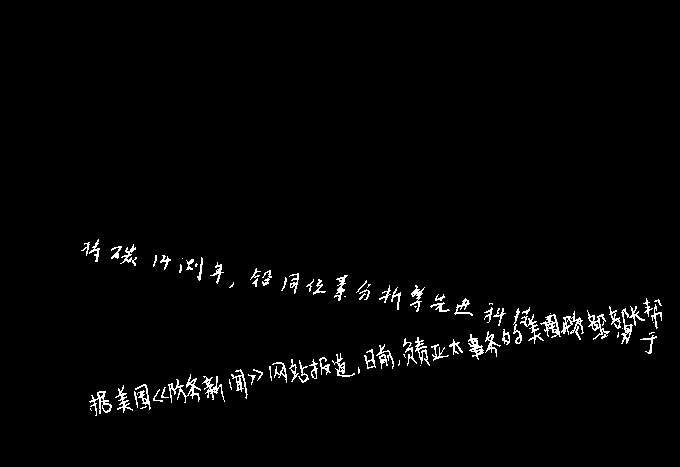 将碳14测年,铅同位素分析等先进科技
据美国《防务新闻》网站报道,日前,负责亚太事务的美国防部